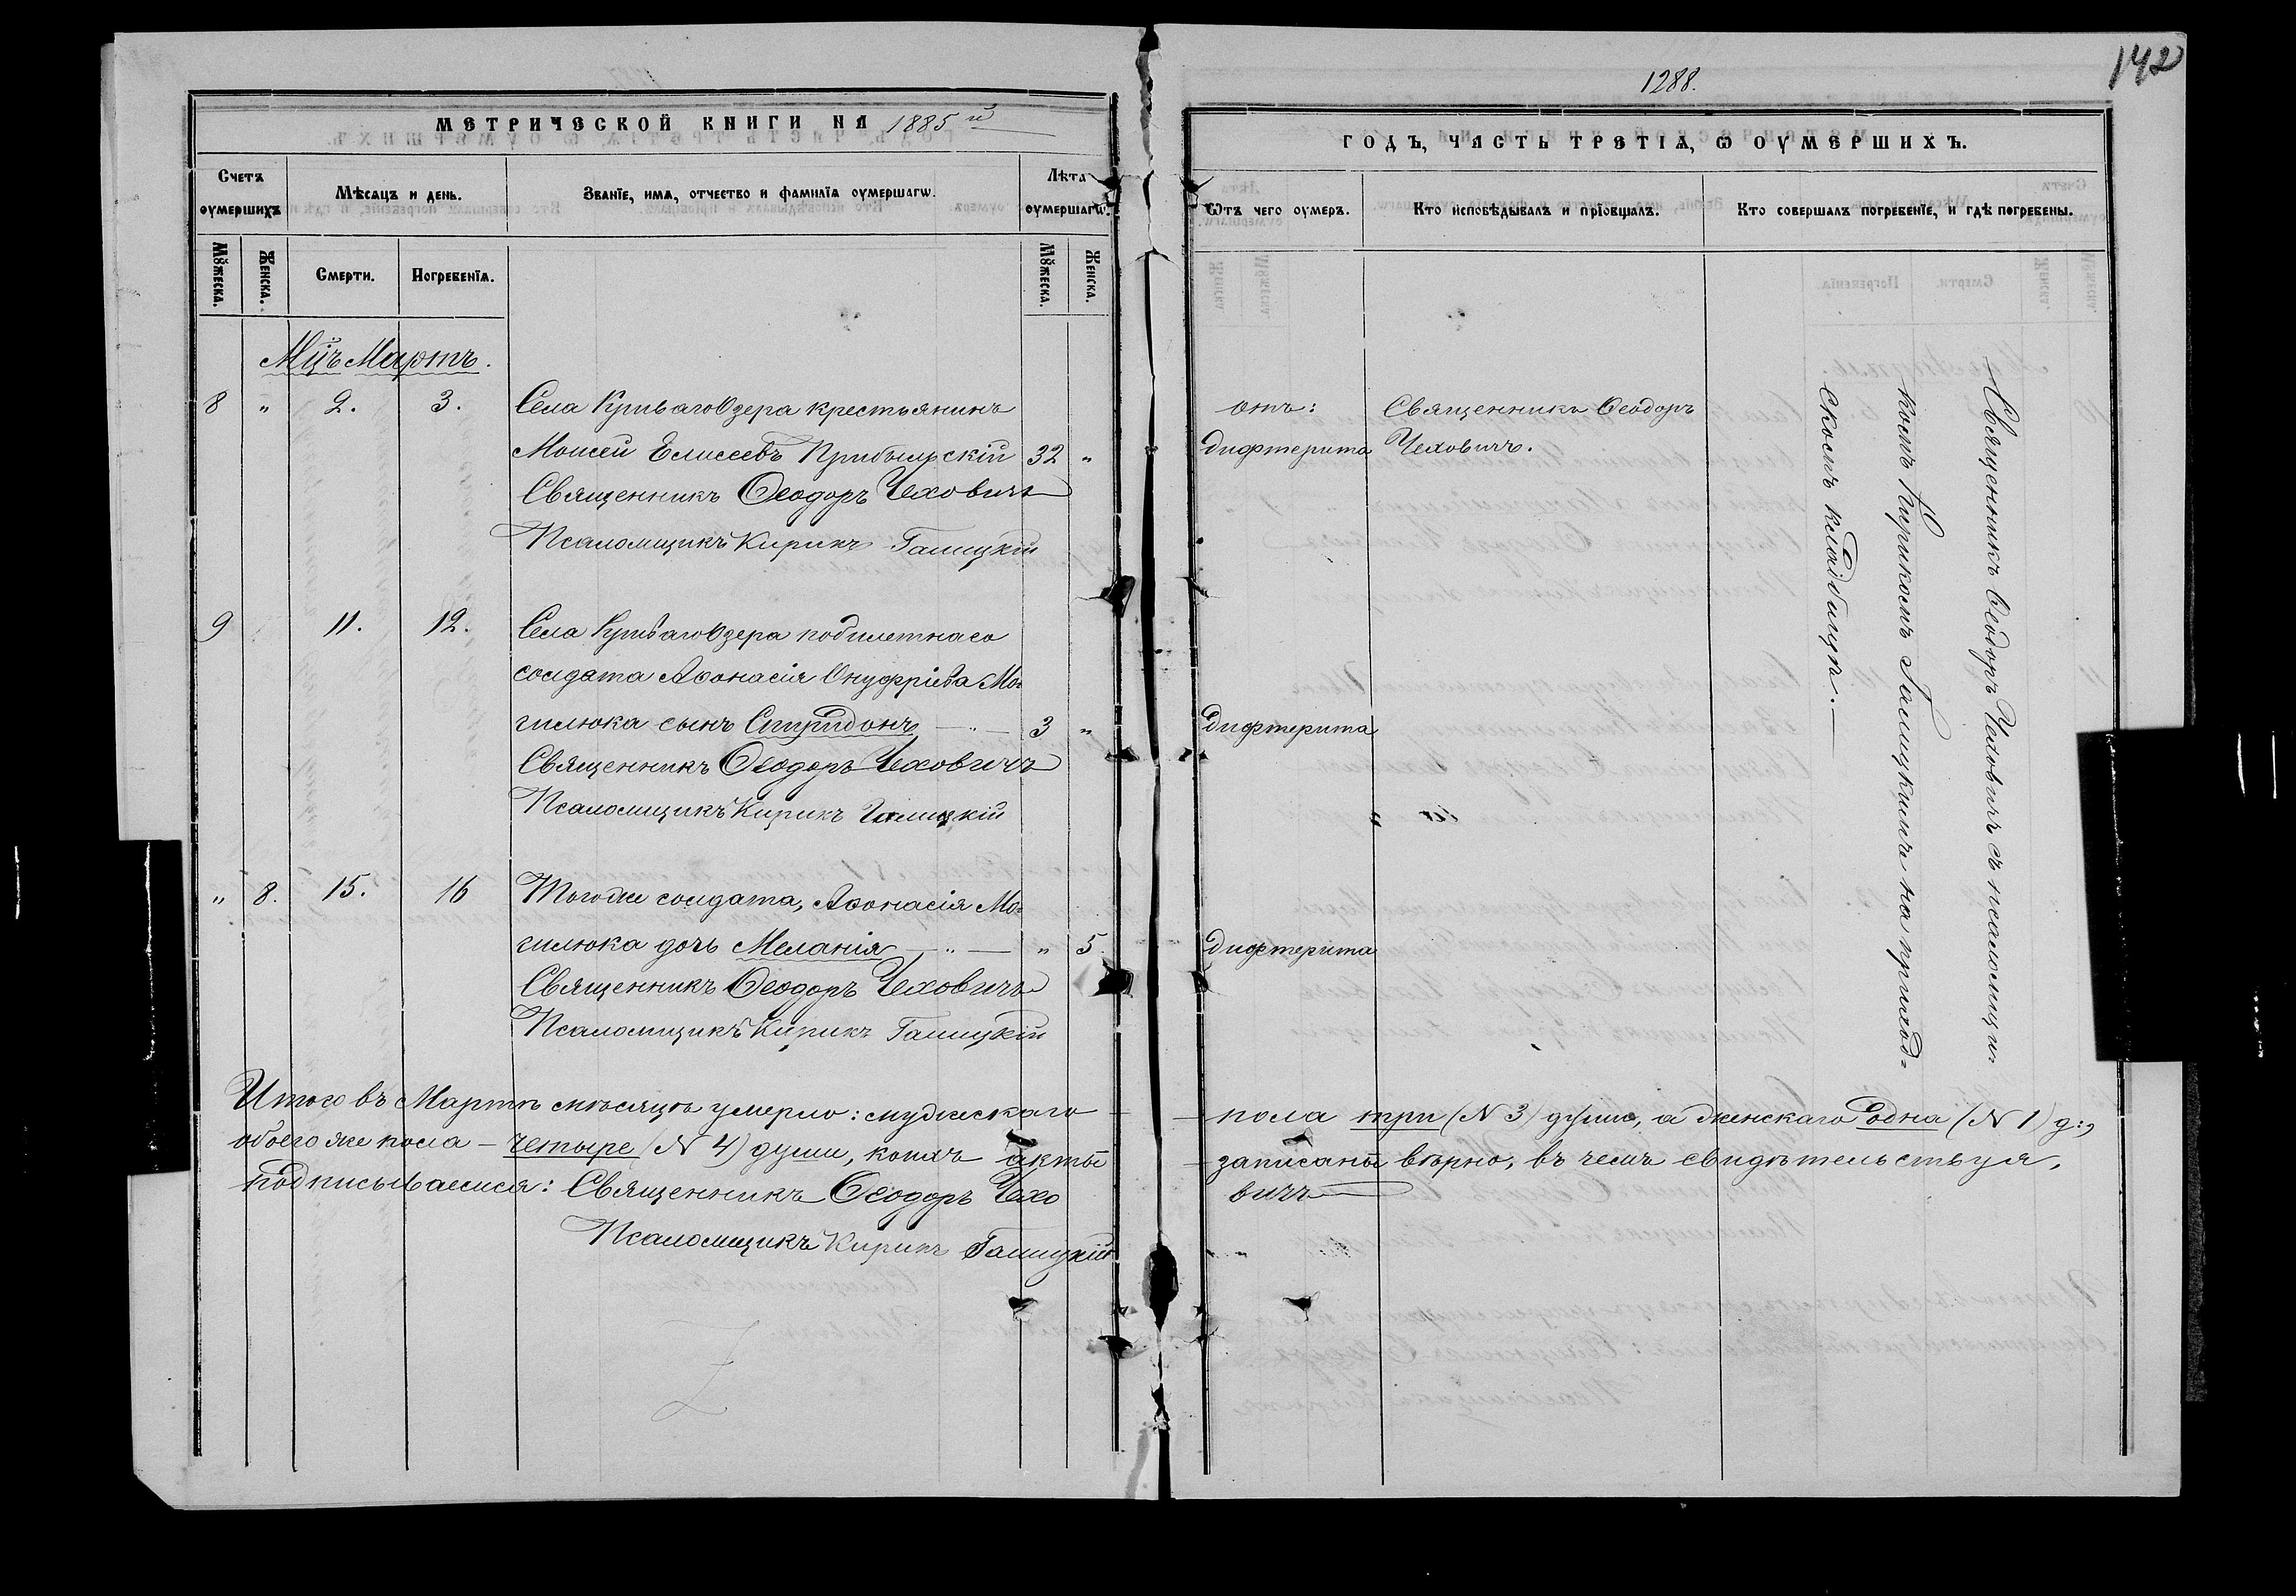 142
1288.
МЕТРИЧЕСКОЙ КНИГИ НА 1885й
ГОДЪ, ЧАСТЬ ТРЕТІѦ, Ѡ ОУМЕРШИХЪ.
Счетъ оумершихъ
Мѣсяцъ и день.
Званїе, имѧ, отчество и фамилїа оумершагѡ.
Лѣта оумершагѡ.
Ѿтъ чего оумеръ.
Кто исповѣдывалъ и прїобщалъ.
Кто совершалъ погребенїе, и гдѣ погребены.
Мꙋжеска.
Женска.
Смерти.
Погребенїа.
Мꙋжеска.
Женска.
Мцъ Мартъ.
8 " 2. 3. Села Криваго Озера крестьянинъ
Моисей Елисеевъ Прибыльскій 32 "
Священникъ Ѳеодоръ Чеховичъ
Псаломщикъ Кирикъ Галицкій
отъ:
дифтерита
Священникъ Ѳеодоръ
Чеховичъ.
Священникъ Ѳеодоръ Чеховичъ съ псаломщи-
комъ Кирикомъ Галицкимъ на приход-
скомъ кладбищѣ.
9 11. 12. Села Криваго Озера побилетнаго
солдата Аѳонасія Онуфріева Мо-
гилюка сынъ Спиридонъ 3 "
Священникъ Ѳеодоръ Чеховичъ
Псаломщикъ Кирикъ Галицкій
дифтерита
" 8. 15. 16 Тогоже солдата, Аѳонасія Мо-
гилюка дочь Меланія " 5.
Священникъ Ѳеодоръ Чеховичъ
Псаломщикъ Кирикъ Галицкій
дифтерита
Итого въ Мартѣ мѣсяцѣ умерло: мужескаго пола три (N 3) душъ, а женскаго одна (N 1) д:,
обоего же пола – четыре (N 4) души, коихъ акты записаны вѣрно, въ чемъ свидѣтельствуя,
подписываемся: Священникъ Ѳеодоръ Чеховичъ
Псаломщикъ Кирикъ Галицкій